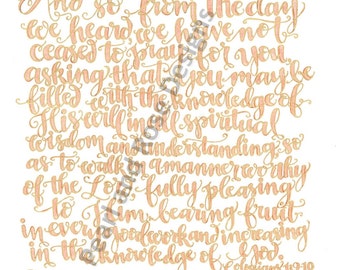 And so from the day
we heard we have not
ceased to pray for you
asking that you may be
filled with the knowledge of
His will in all spiritual
wisdom and understanding, so
as to walk in a manner worthy
of the Lord, fully pleasing
to Him, bearing fruit
in every good work and increasing
in the knowledge of God.
Colossians 1:9-10
Pearl and Rose Designs